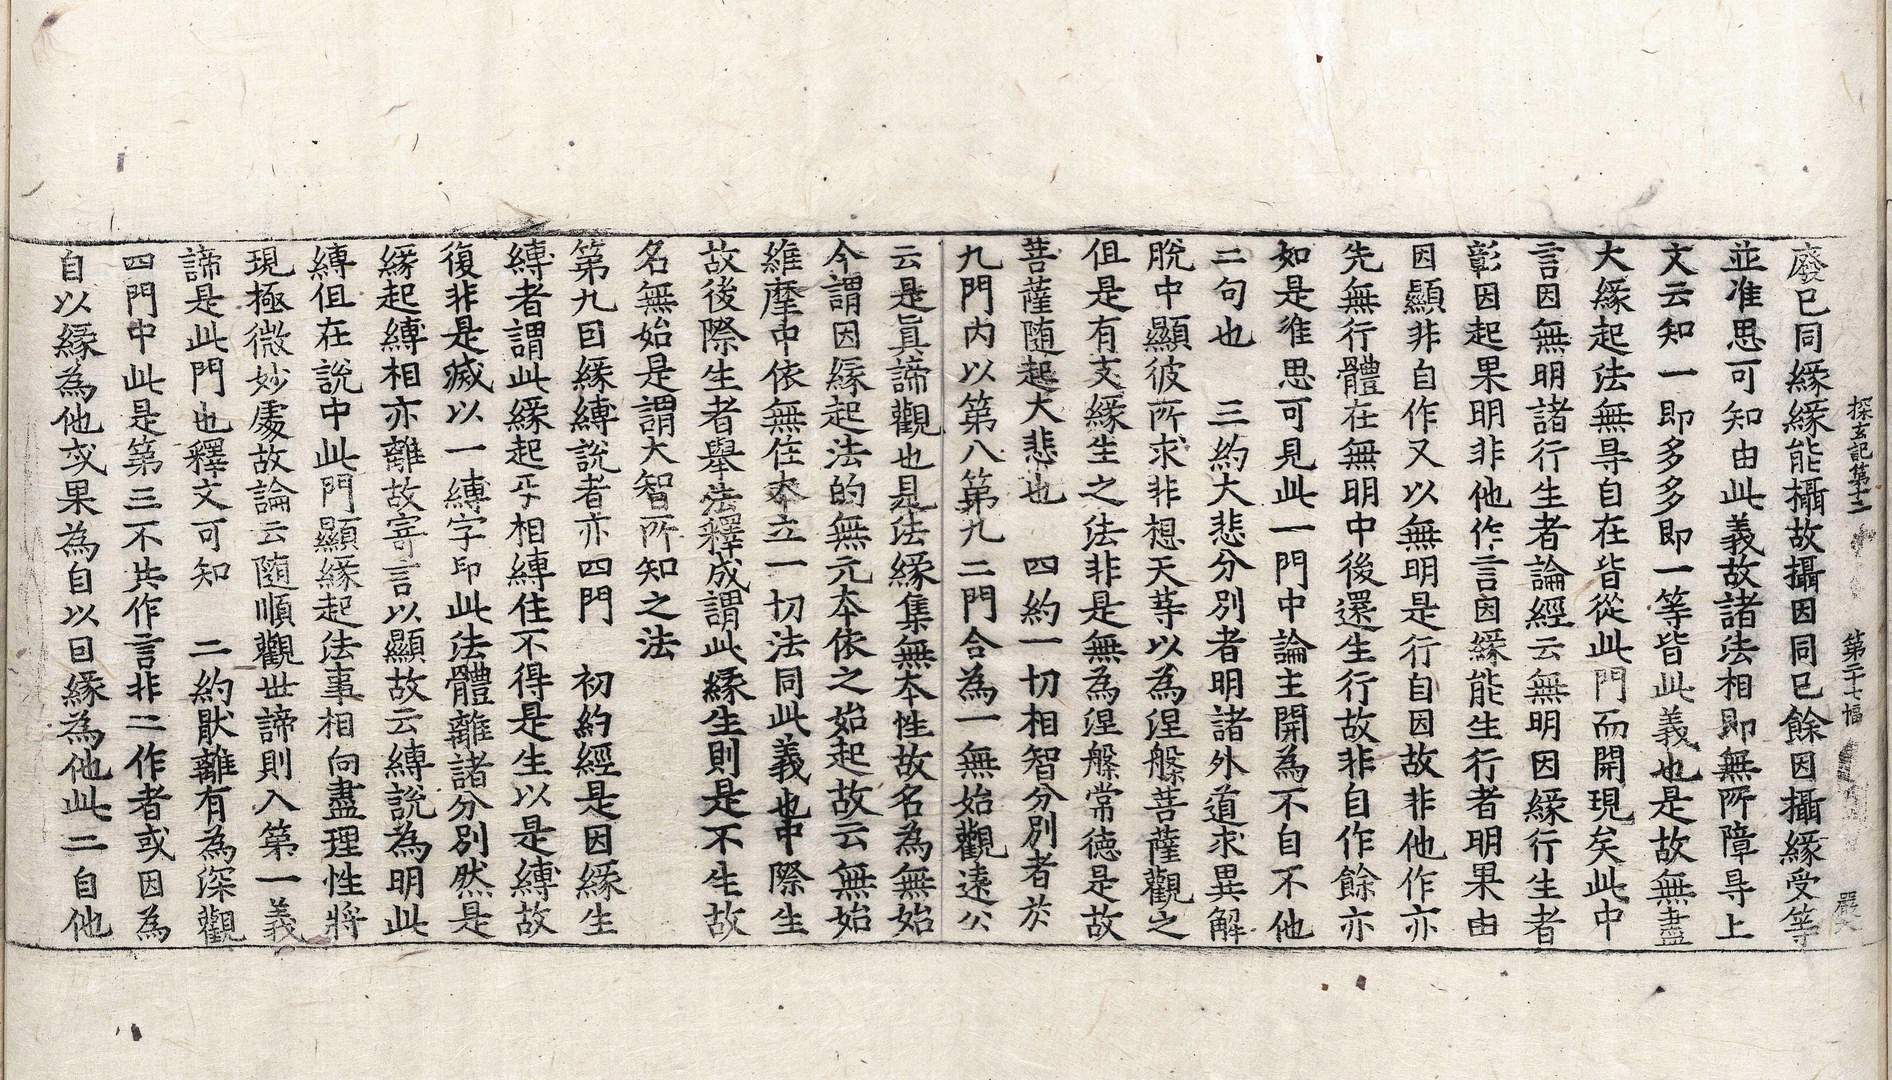 探玄記第十二 第二十七幅 嚴大
廢已同緣緣能攝故攝因同已餘因攝緣受等
並准思可知由此義故諸法相即無所障㝵上
文云知一即多多即一等皆此義也是故無盡
大緣起法無㝵自在皆從此門而開現矣此中
言因無明諸行生者論經云無明因緣行生者
彰因起果明非他作言因緣能生行者明果由
因顯非自作又以無明是行自因故非他作亦
先無行體在無明中後還生行故非自作餘亦
如是准思可見此一門中論主開為不自不他
二句也 三約大悲分別者明諸外道求異解
脫中顯彼所求非想天等以為涅槃菩薩觀之
但是有支緣生之法非是無為涅槃常德是故
菩薩随起大悲也 四約一切相智分別者於
九門內以第八第九二門合為一無始觀遠公
云是真諦觀也是法緣集無本性故名為無始
今謂因緣起法的無元本依之始起故云無始
維摩中依無住本立一切法同此義也中際生
故後際生者舉法釋成謂此緣生則是不生故
名無始是謂大智所知之法
第九因緣縛說者亦四門 初約經是因緣生
縛者謂此緣起乎相縛住不得是生以是縛故
復非是滅以一縛字印此法體離諸分別然是
緣起縛相亦離故寄言以顯故云縛說為明此
縛但在說中此門顯緣起法事相向盡理性將
現極微妙處故論云随順觀世諦則入第一義
諦是此門也釋文可知 二約猒離有為深觀
四門中此是第三不共作言非二作者或因為
自以緣為他或果為自以因緣為他此二自他